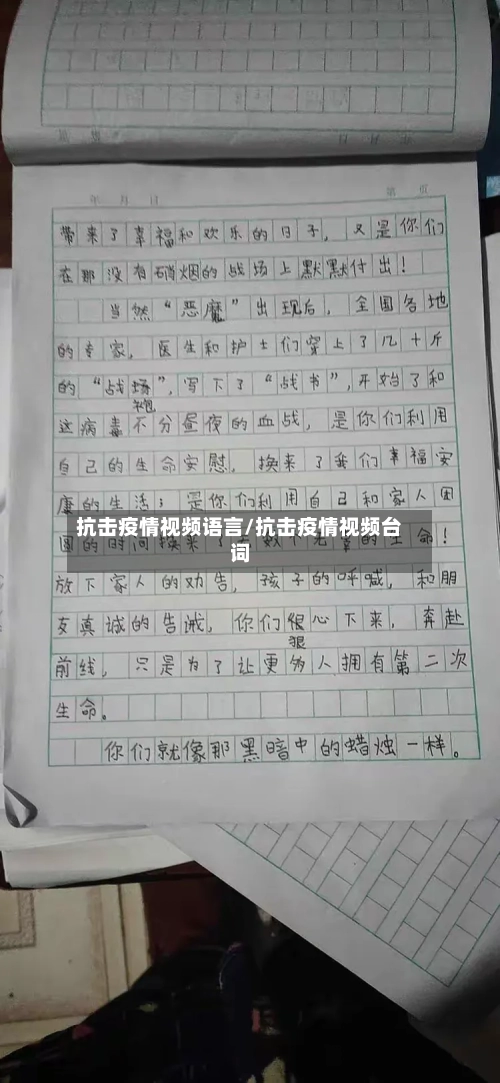 年 月 日
第 页
带来了幸福和欢乐的日子，又是你们
在那没有硝烟的战场上默默付出！
当然“恶魔”出现后，全国各地
的专家，医生和护士们穿上了几十斤
的“战袍”，写下了“战书”，开始了和
这病毒不分昼夜的血战，是你们利用
自己的生命安慰，换来了我们幸福安
康的生活；是你们利用自己和家人团
圆的时间换来了无数个无辜的生命！
抗击疫情视频语言/抗击疫情视频台
词
放下家人的劝告，孩子的呼喊，和朋
友真诚的告诫，你们狠心下来，奔赴
前线，只是为了让更多人拥有第二次
生命。
你们就像那黑暗中的蜡烛一样。